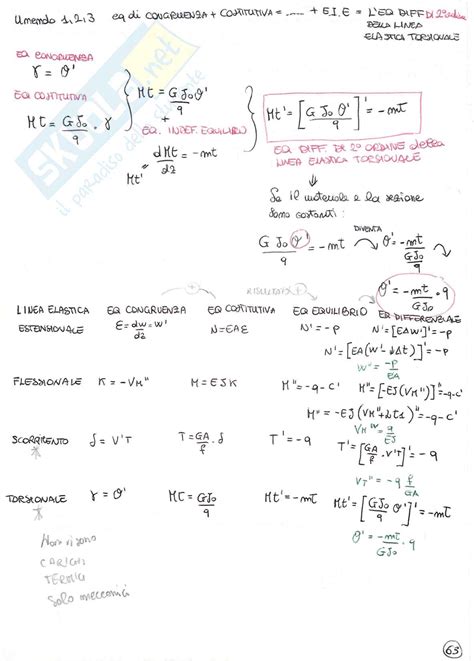 Unendo 1,2,3 eq di CONGRUENZA + COSTITUTIVA = ...... + E.I.E = L'EQ DIFF DI 2°ordine
DELLA LINEA
ELASTICA TORSIONALE
EQ CONGRUENZA
γ = Θ'
EQ COSTITUTIVA
Mt = G J₀/q . γ
Mt = G J₀ Θ'/q
EQ. INDEF. EQUILIBRIO
Mt' = dMt/dz = -mt
Mt' = [G J₀ Θ'/q]' = -mt
EQ DIFF DI 2° ORDINE della
LINEA ELASTICA TORSIONALE
Se il materiale e la sezione
sono costanti:
G J₀ Θ'/q = -mt
DIVENTA
Θ' = -mt/GJ₀/q
Θ' = -mt/GJ₀ . q
LINEA ELASTICA EQ CONGRUENZA EQ COSTITUTIVA EQ EQUILIBRIO EQ DIFFERENZIALE
ESTENSIONALE ε = dw/dz = w' N = EAε N' = -p N' = [EAW']' = -p
N' = [EA(W' - αΔt)]' = -p
W'' = -p/EA
FLESSIONALE K = -VM'' M = EJK M'' = -q - c' M'' = [-EJ(VM'')]'' = -q-c'
M'' = -EJ(VM''+αts)'' = -q-c'
VM'''' = q/EJ
SCORRIMENTO δ = V'T T = GA/f . δ T' = -q T' = [GA/f . V'T]' = -q
VT'' = -q f/GA
TORSIONALE γ = Θ' Mt = GJ₀/q Mt' = -mt Mt' = [GJ₀/q Θ']' = -mt
Θ' = -mt/GJ₀ . q
Non vi sono
CARICHI
TERMICI
Solo meccanici
63
SKUOLA.net
il paradiso dello studente